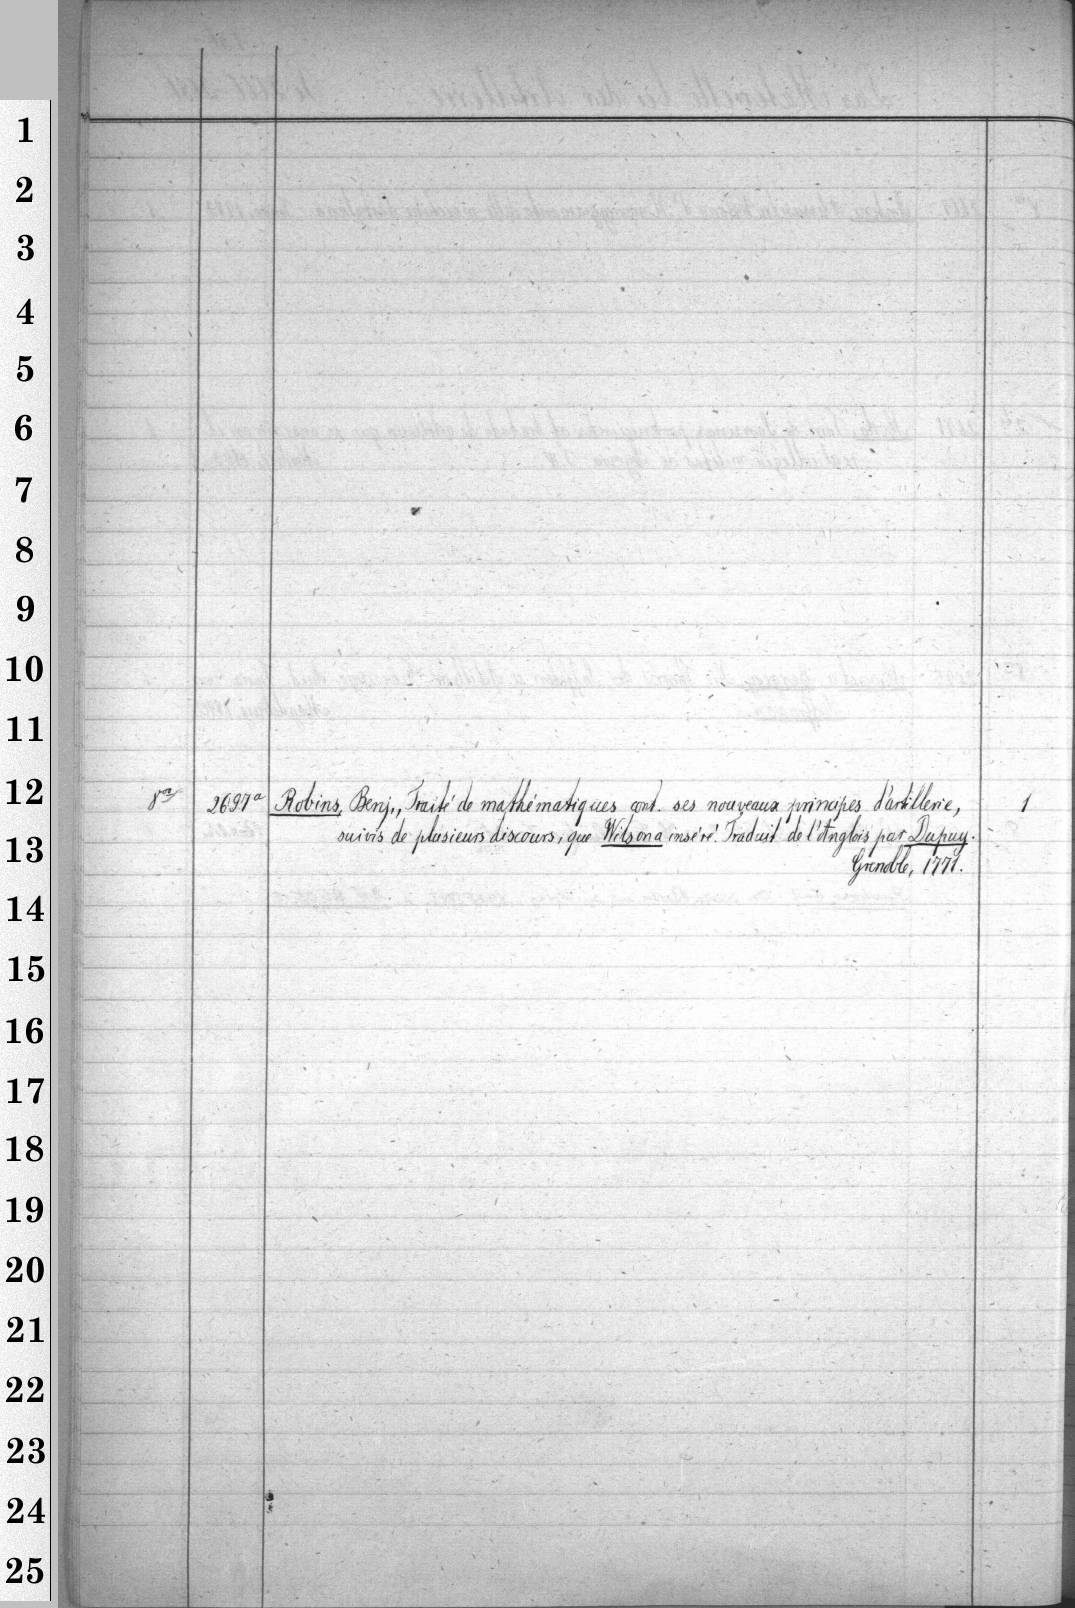 1
2
3
4
5
6
7
8
9
10
11
12
8vo 2697a Robins, Benj., Traité de mathématiques cont. ses nouveaux principes d'artillerie, 1
suivis de plusieurs discours, que Wilson a inséré. Traduit de l'Anglois par Dupuy.
13
Grenoble, 1771.
14
15
16
17
18
19
20
21
22
23
24
25